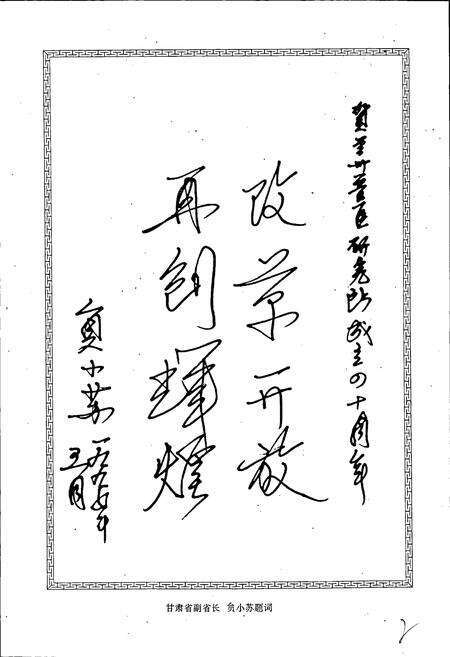 贺兰州兽医研究所成立四十周年
改革开放
再创辉煌
贠小苏 一九九七年
五月
甘肃省副省长 贠小苏题词
2